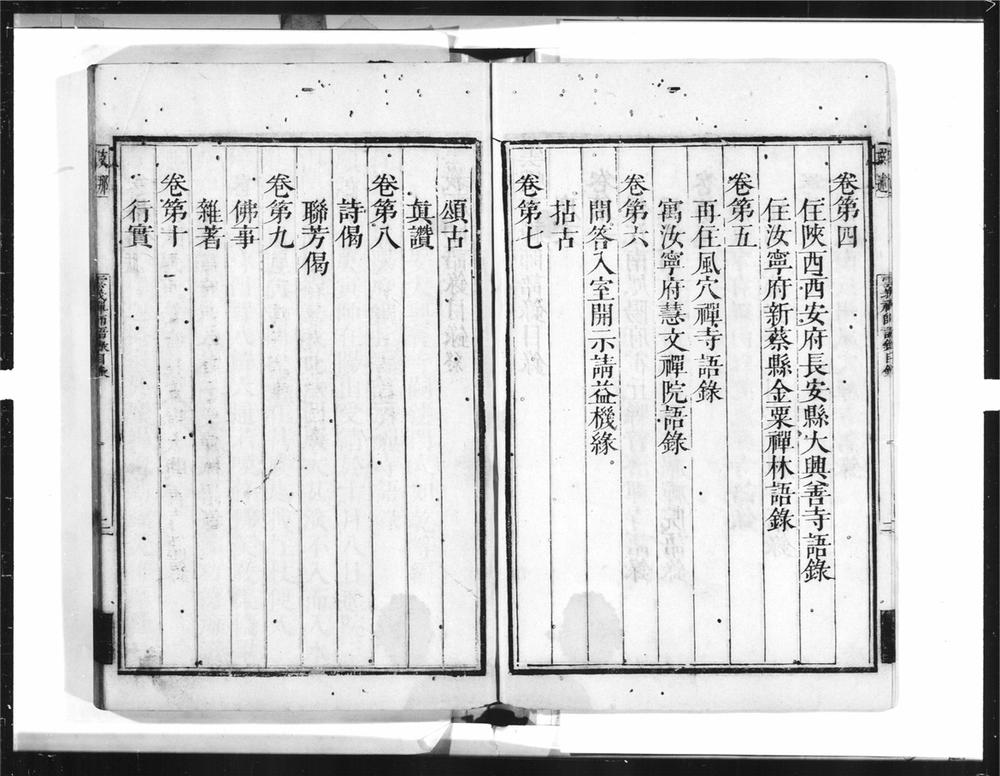 卷第四
住陝西西安府長安縣大興善寺語錄
住汝寧府新蔡縣金粟禪林語錄
卷第五
再住風穴禪寺語錄
寓汝寧府慧文禪院語錄
卷第六
問答入室開示請益機緣。
拈古
卷第七
頌古
眞讚
卷第八
詩偈
聯芳偈
卷第九
佛事
雜著
卷第十
行實